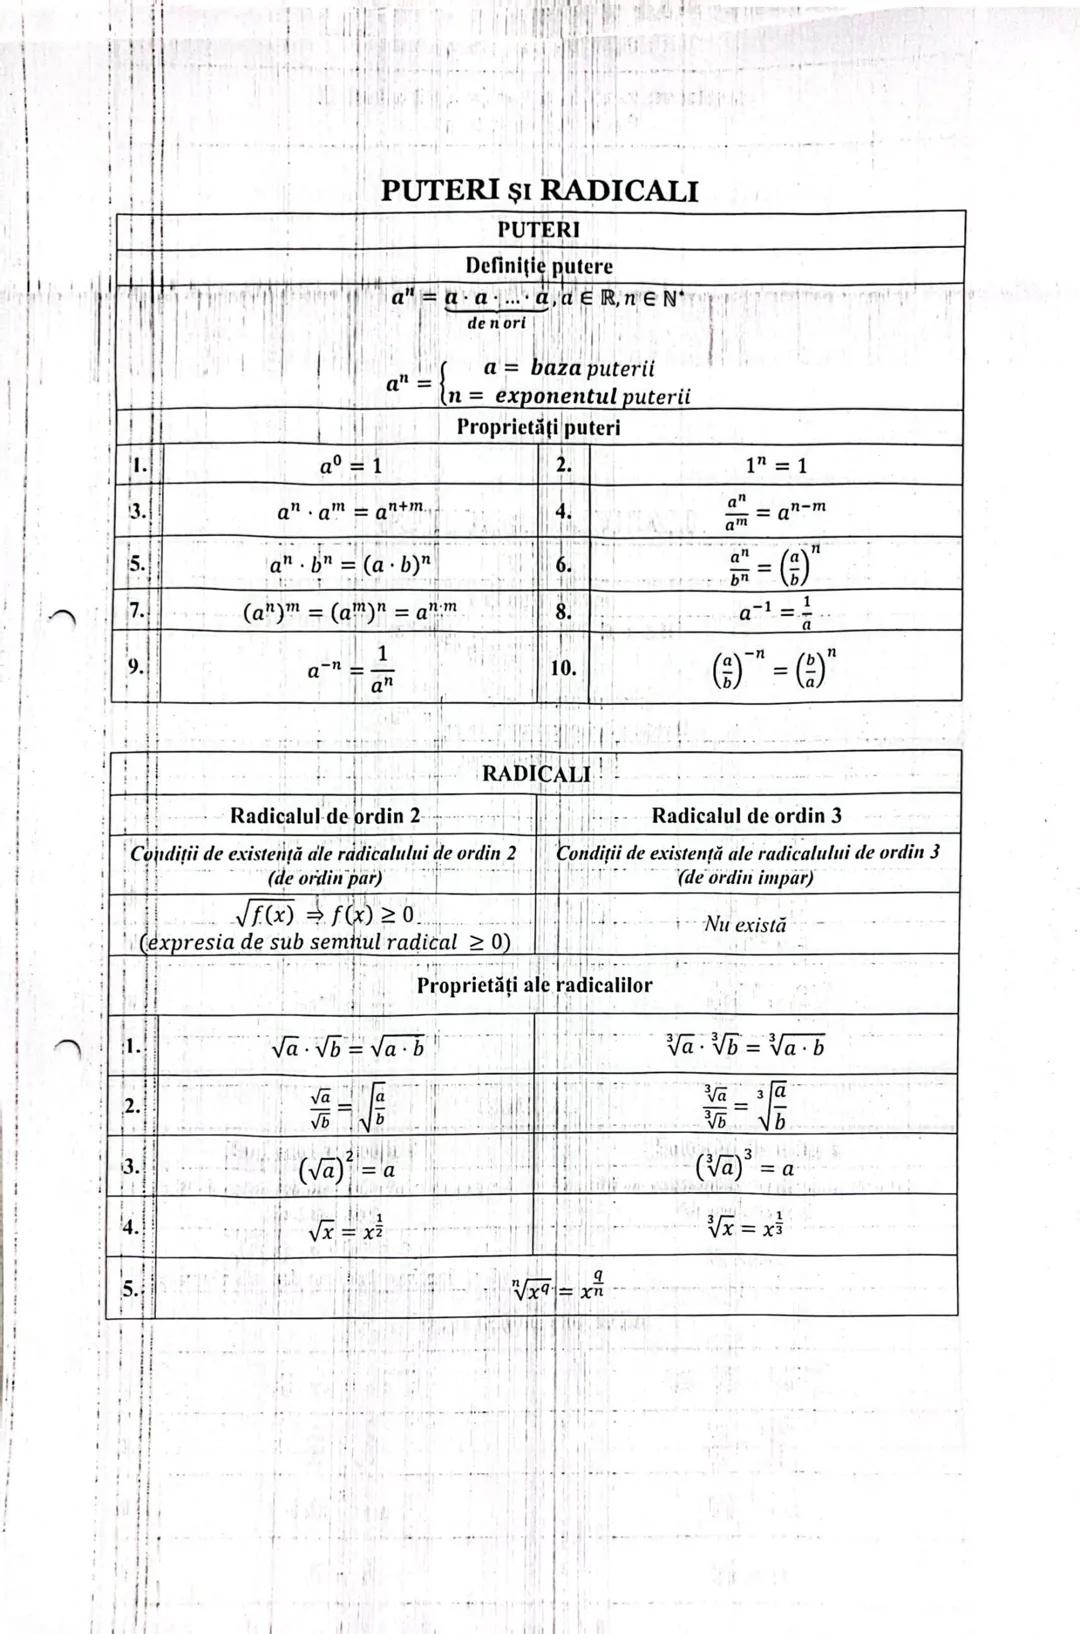 PUTERI ȘI RADICALI
PUTERI
Definiție putere
aⁿ = a · a · ... · a, a ∈ ℝ, n ∈ ℕ*
de n ori
aⁿ = { a = baza puterii
n = exponentul puterii
Proprietăți puteri
1. a⁰ = 1 2. 1ⁿ = 1
3. aⁿ · aᵐ = aⁿ⁺ᵐ 4. aⁿ/aᵐ = aⁿ⁻ᵐ
5. aⁿ · bⁿ = (a · b)ⁿ 6. aⁿ/bⁿ = (a/b)ⁿ
7. (aⁿ)ᵐ = (aᵐ)ⁿ = a^(n·m) 8. a⁻¹ = 1/a
9. a⁻ⁿ = 1/aⁿ 10. (a/b)⁻ⁿ = (b/a)ⁿ
RADICALI
Radicalul de ordin 2 Radicalul de ordin 3
Condiții de existență ale radicalului de ordin 2 Condiții de existență ale radicalului de ordin 3
(de ordin par) (de ordin impar)
√f(x) ⇒ f(x) ≥ 0 Nu există
(expresia de sub semnul radical ≥ 0)
Proprietăți ale radicalilor
1. √a · √b = √(a · b) ∛a · ∛b = ∛(a · b)
2. √a/√b = √(a/b) ∛a/∛b = ∛(a/b)
3. (√a)² = a (∛a)³ = a
4. √x = x^(1/2) ∛x = x^(1/3)
5. ⁿ√(x^q) = x^(q/n)